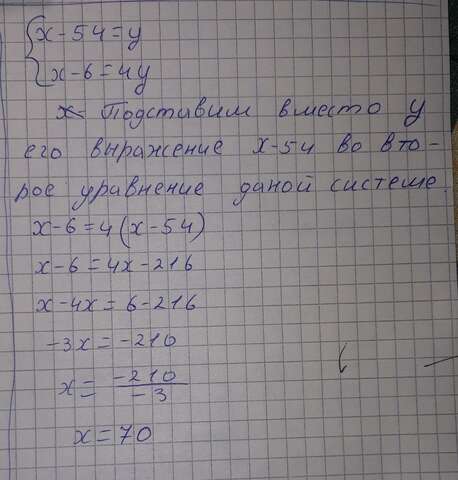 {x-54=y
x-6=4y
x Подставим вместо y
его выражение x-54 во вто-
рое уравнение даной системе.
x-6=4(x-54)
x-6=4x-216
x-4x=6-216
-3x=-210
x=-210/-3
x=70